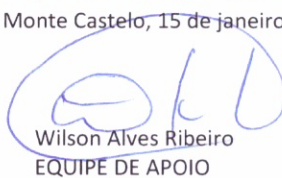 Monte Castelo, 15 de janeiro
Wilson Alves Ribeiro
EQUIPE DE APOIO